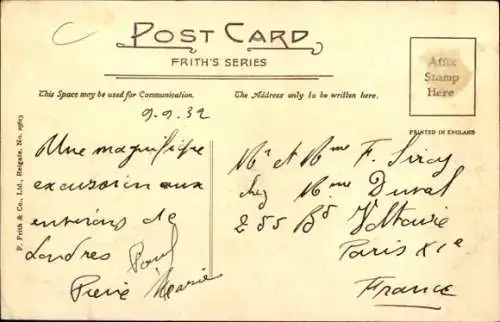 POST CARD
FRITH'S SERIES
This Space may be used for Communication.
The Address only to be written here.
Affix
Stamp
Here
PRINTED IN ENGLAND
F. Frith & Co., Ltd., Reigate. No. 
9.9.32
Une magnifique
excursion aux
environs de
Londres Paul
Pierre Marie
Mr et Mme F. Siroy
chez Mme Duval
255 Bd Voltaire
Paris XIe
France